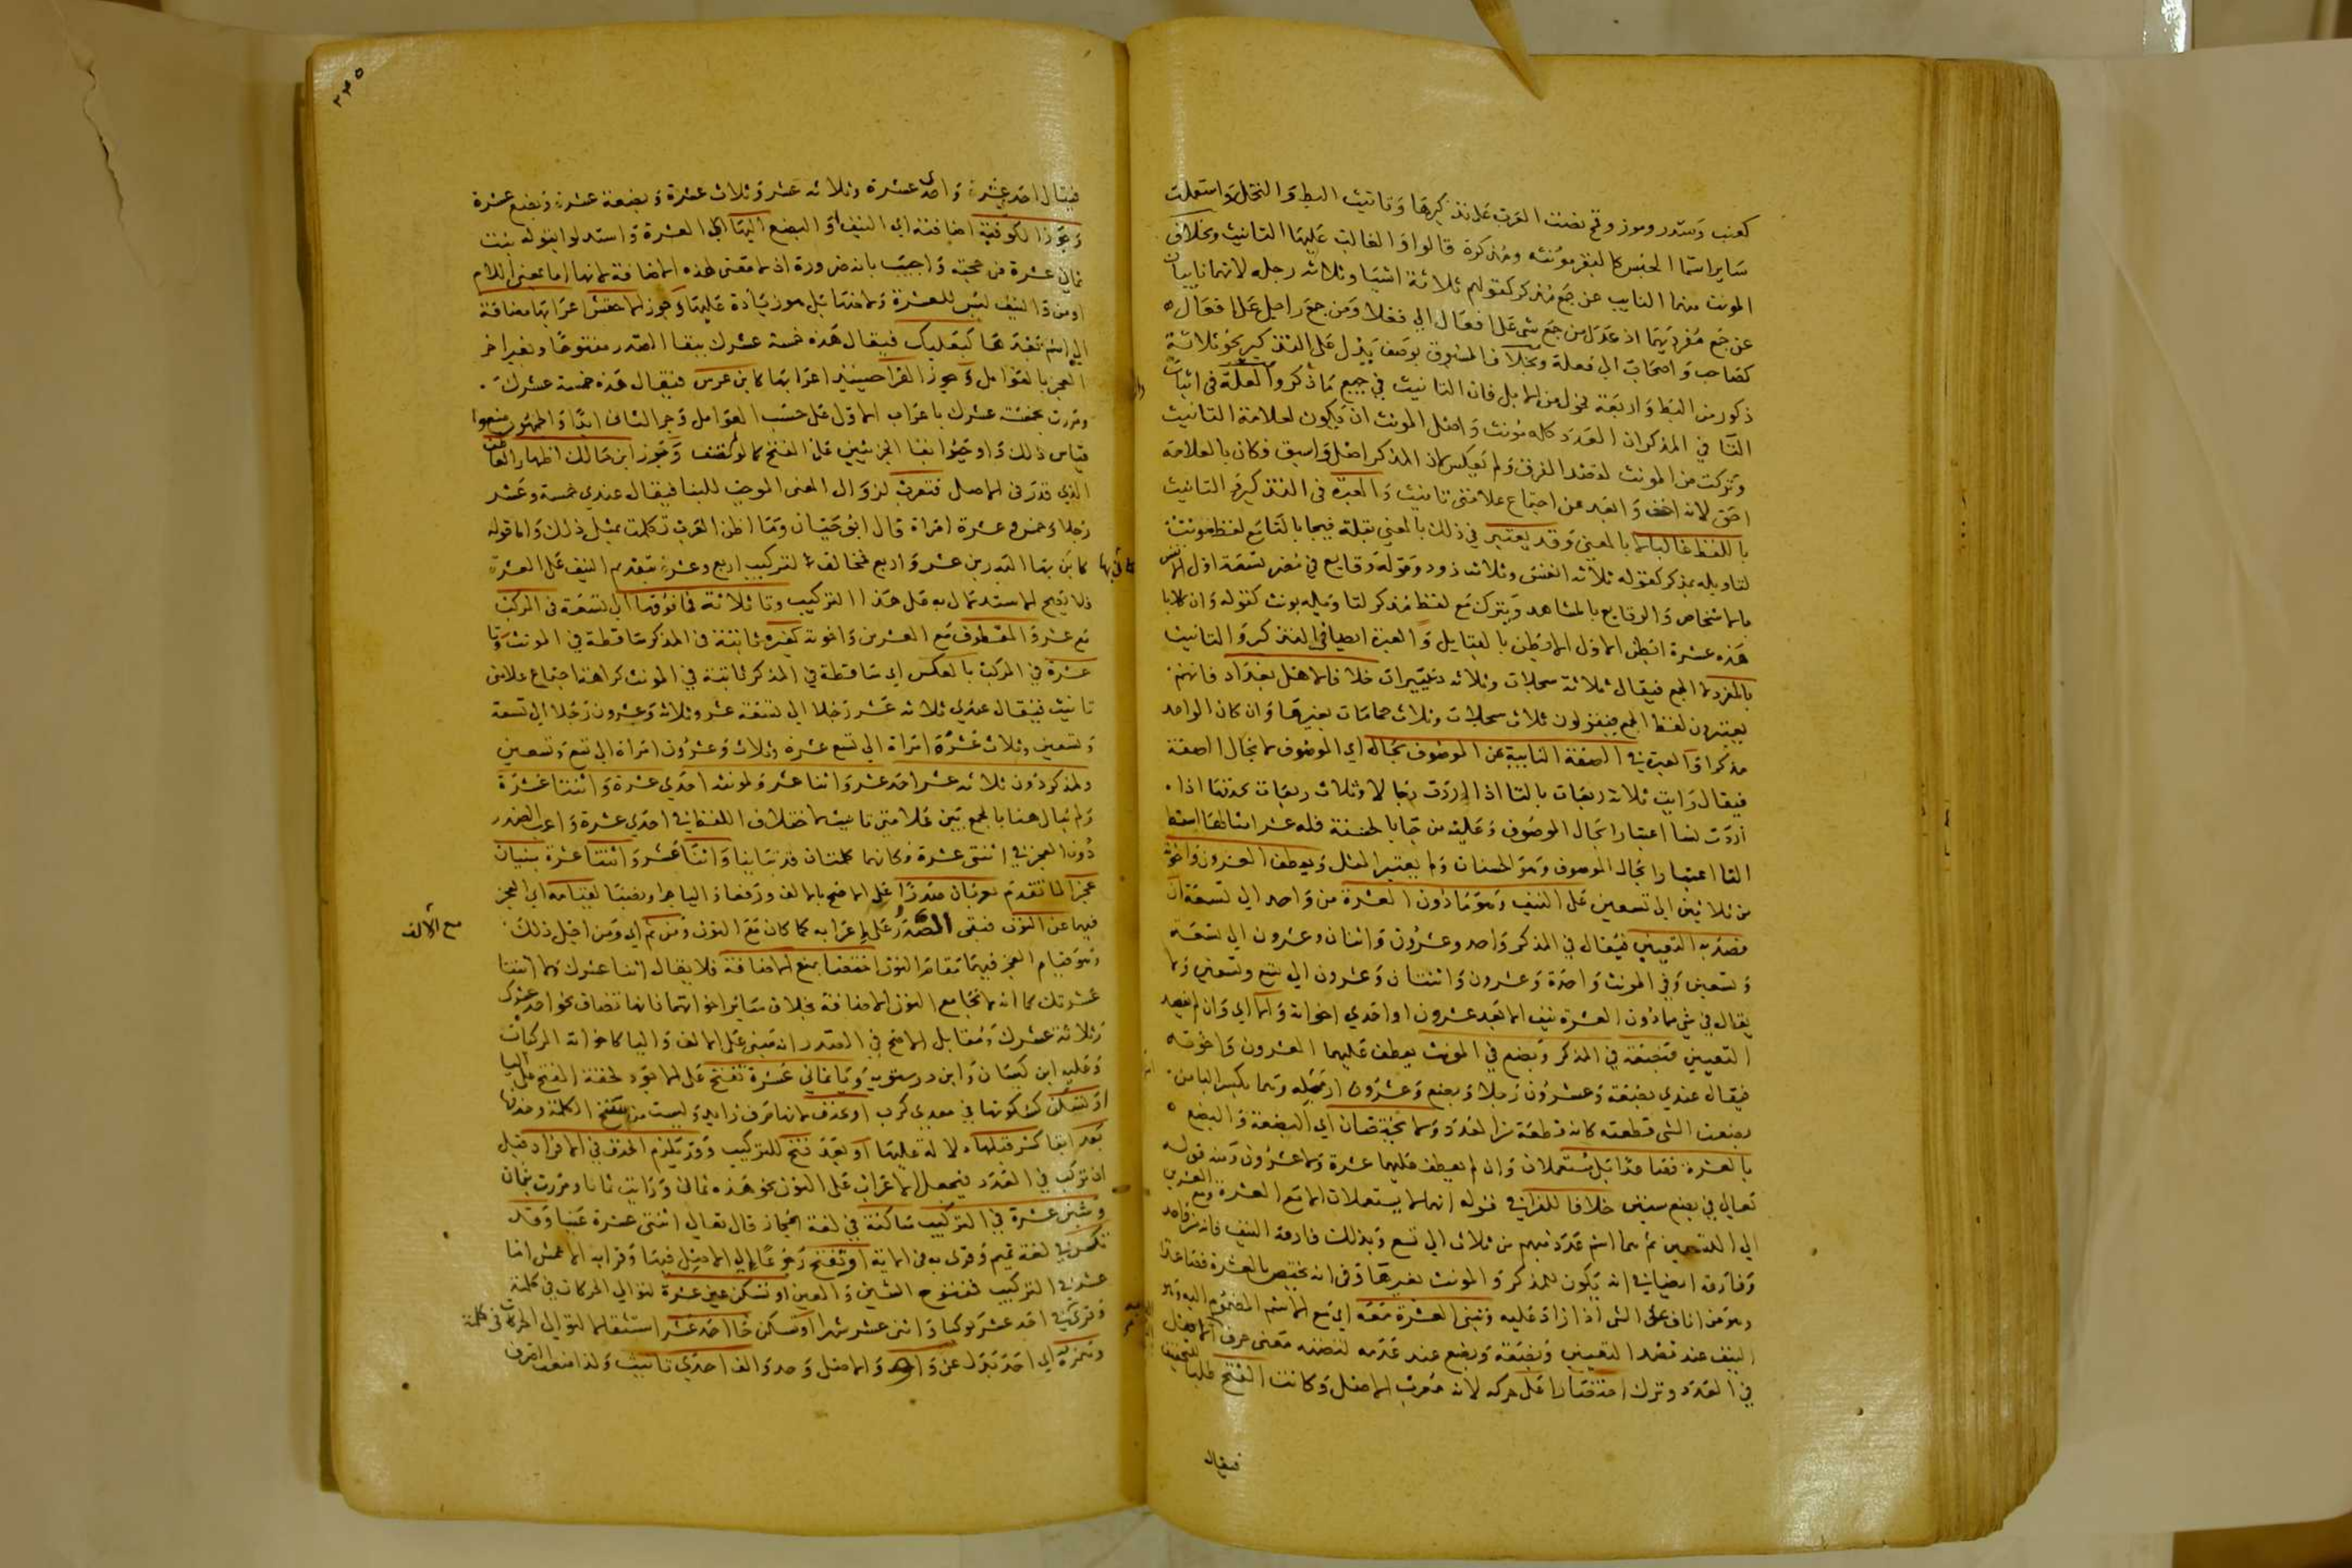 كعنب وسدر وموز وقمح نصت العرب على تذكيرها وتانيث البط والنخل واستعملت
ساير اسما الجنس كالبقر مؤنثه ومذكرة قالوا والغالب عليها التانيث وبخلاف
المونث منهما النايب عن جمع مذكر كقولهم ثلاثة اشيا وثلاثه رجله لانهما نايبان
عن جمع مفرديهما اذ عدل من جمع شي على افعال الي فعلا ومن جمع راجل على افعال
كصاحب واصحاب الي فعلة وبخلاف المسبوق بوصف يدل على التذكير نحو ثلاثة
ذكور من البط واربعة فحول من الابل فان التانيث في جميع ما ذكروا العلة في اثبات
التا في المذكر ان العدد كله مونث واصل المونث ان يكون لعلامة التانيث
وتركت من المونث لقصد الفرق ولم يعكس لان المذكر اصل واسبق فكان بالعلامة
احق لانه اخف وابعد عن اجتماع علامتي تانيث والعبرة في التذكير والتانيث
باللفظ غالبا لا بالمعني وقد يعتبر في ذلك بالمعني بقلة فيجا بالتا مع لفظ مونث
لتاويله بمذكر كقوله ثلاثه انفس وثلاث ذود وقوله وقايع في مضر تسعة اول الانفس
بالاشخاص والوقايع بالمشاهد ويترك مع لفظ مذكر لتاويله بمونث كقوله وان كلابا
هذه عشرة ابطن اول الابطن بالقبايل والعبرة ايضا في التذكير والتانيث
بالمفرد لا الجمع فيقال ثلاثة سجلات وثلاثه دنينيرات خلافا لاهل بغداد فانهم
يعتبرون لفظ الجمع فيقولون ثلاث سجلات وثلاث حمامات بغيرها وان كان الواحد
مذكرا والعبرة في الصفة النايبة عن الموصوف بحاله اي الموصوف لا بحال الصفة
فيقال رايت ثلاثة ربعات بالتا اذا اردت رجالا وثلاث ربعات بحذفها اذا
اردت نسا اعتبارا بحال الموصوف وعليه من جا بالحسنة فله عشر امثالها اسقط
التا اعتبارا بحال الموصوف وهو الحسنات ولم يعتبر المثل ويعطف العشرون واخوته
من ثلاثين الي تسعين على النيف وهو ما دون العشرة من واحد الي تسعة ان
قصد به التعيين فيقال في المذكر واحد وعشرون واثنان وعشرون الي تسعة
وتسعين وفي المونث واحدة وعشرون واثنتان وعشرون الي تسع وتسعين ولا
يقال في شي مما دون العشرة نيف الا بعد عشرون او احدي اخواته والا اي وان لم يقصد
التعيين فبضعة في المذكر وبضع في المونث يعطف عليهما العشرون واخوته
فيقال عندي بضعة وعشرون رجلا وبضع وعشرون امراة وهما بكسر البا من
بضعت الشي قطعته كانه قطعة من العدد ولا يختصان اي البضعة والبضع
بالعشرة فصاعدا بل يستعملان وان لم يعطف عليهما عشرة ولا عشرون ومنه قوله
تعالي في بضع سنين خلافا للفرا في قوله انهما لا يستعملان الا مع العشرة ومع العشرين
الي التسعين ثم هما اسم عدد مبهم من ثلاث الي تسع وبذلك فارق النيف فانه من واحد
وفارقه ايضا في انه يكون للمذكر والمونث بغير هاء وفي انه يختص بالعشرة فصاعدا
وهو من اناف على الشي اذا زاد عليه وتبني العشرة معه اي مع الاسم المضموم اليه وهو
النيف عند قصد التعيين وبضعة وبضع عند عدمه لتضمنه معني حرف العطف الاصل
في العدد وترك اقتصارا على حركه لانه معرب الاصل وكانت الفتح طلبا للتخفيف
فيقال
٢٣٥
فيقال احد عشر واحدي عشرة وثلاثه عشر وثلاث عشرة وبضعة عشر وبضع عشرة
وجوز الكوفية اضافته اي النيف او البضع اليها اي العشرة واستدلوا بقوله بنت
ثماني عشرة من حجته واجيب بانه ضرورة اذ لا معني لهذه الاضافة لانها اما بمعني اللام
او من والنيف ليس للعشرة ولا منها بل هو زيادة عليها وجوز الاخفش اعرابها مضافة
الي اسم بعدها كبعلبك فيقال هذه خمسة عشرك ببقا الصدر مفتوحا وتغير اخر
العجز بالعوامل وجوز الفرا حينيذ اعرابها كابن عرس فيقال هذه خمسة عشرك
ومررت بخمسة عشرك باعراب الاول على حسب العوامل وجر الثاني ابدا والجمهور منعوا
قياس ذلك واوجبوا بقا الجزئين على الفتح كما لو لم تضف وجوز ابن مالك اظهار العاطف
الذي قدر في الاصل فتعرب لزوال المعني الموجب للبنا فيقال عندي خمسة وعشر
رجلا وخمس وعشرة امراة قال ابو حيان وما اظن العرب تكلمت بمثل ذلك واما قوله
كان بها البدر ابن عشر واربع فمخالف لتركيب اربع وعشرة بتقديم النيف على العشرة
فلا يصح الاستدلال به على هذا التركيب وتا ثلاثة فما فوقها الي تسعة في المركب
مع عشر والمعطوف مع العشرين واخوته كغيره ثابتة في المذكر ساقطة في المونث وتا
عشرة في المركب بالعكس اي ساقطة في المذكر ثابتة في المونث كراهة اجتماع علامتي
تانيث فيقال عندي ثلاثه عشر رجلا الي تسعة عشر وثلاثة وعشرون رجلا الي تسعة
وتسعين وثلاث عشرة امراة الي تسع عشرة وثلاث وعشرون امراة الي تسع وتسعين
ولمذكر دون ثلاثه عشر احد عشر واثنا عشر ولمونثه احدي عشرة واثنتا عشرة
ولم يبال هنا بالجمع بين علامتي تانيث لاختلاف اللفظ في احدي عشرة واعرب الصدر
دون العجز في اثنتي عشرة وكانهما كلمتان قد تباينا واثنا عشر واثنتا عشرة يبنيان
عجزا لما تقدم يعربان صدرا على الاصح بالالف رفعا والياء جرا ونصبا لقيامه اي العجز
فيهما عن النون فبقي الصدر على اعرابه كما كان مع النون ومن ثم اي ومن اجل ذلك
مع الالف
وهو قيام العجز فيهما مقام النون اختصا بمنع الاضافة فلا يقال اثنا عشرك ولا اثنتا
عشرتك كما انه لا تجامع النون الاضافة بخلاف ساير اخواتهما فانها تضاف نحو احد عشرك
وثلاثة عشرك ومقابل الاصح في الصدر انه مبني على الالف واليا كاخواته المركبات
وعليه ابن كيسان وابن درستويه ويا ثماني عشرة تفتح على الاجود لخفة الفتح على اليا
او تسكن كسكونها في معدي كرب او تحذف لانها حرف زايد وليست من سنخ الكلمة وحذفها
بعد ابقا كسر قبلها دلالة عليها او بعد فتح للتركيب وقد يلزم الحذف في الافراد قبل
ان تركب في العدد فيجعل الاعراب على النون نحو هذه ثمان ورايت ثمانا ومررت بثمان
وشين عشرة في التركيب ساكنة في لغة الحجاز قال تعالي اثنتي عشرة عينا وقد
تكسر في لغة تميم وقري به في الاية او تفتح رجوعا الي الاصل فيها وقرا به الاعمش اما
عشر في التركيب فمفتوح الشين والعين او تسكن عين عشرة لتوالي الحركات في كلمة
وقري في احد عشر كوكبا واثني عشر شهرا او تسكن حا احد عشر استثقالا لتوالي الحركات في كلمة
وهمزة اي احد بدل عن واو والاصل وحد والف احدي تانيث ولذا منعت الصرف